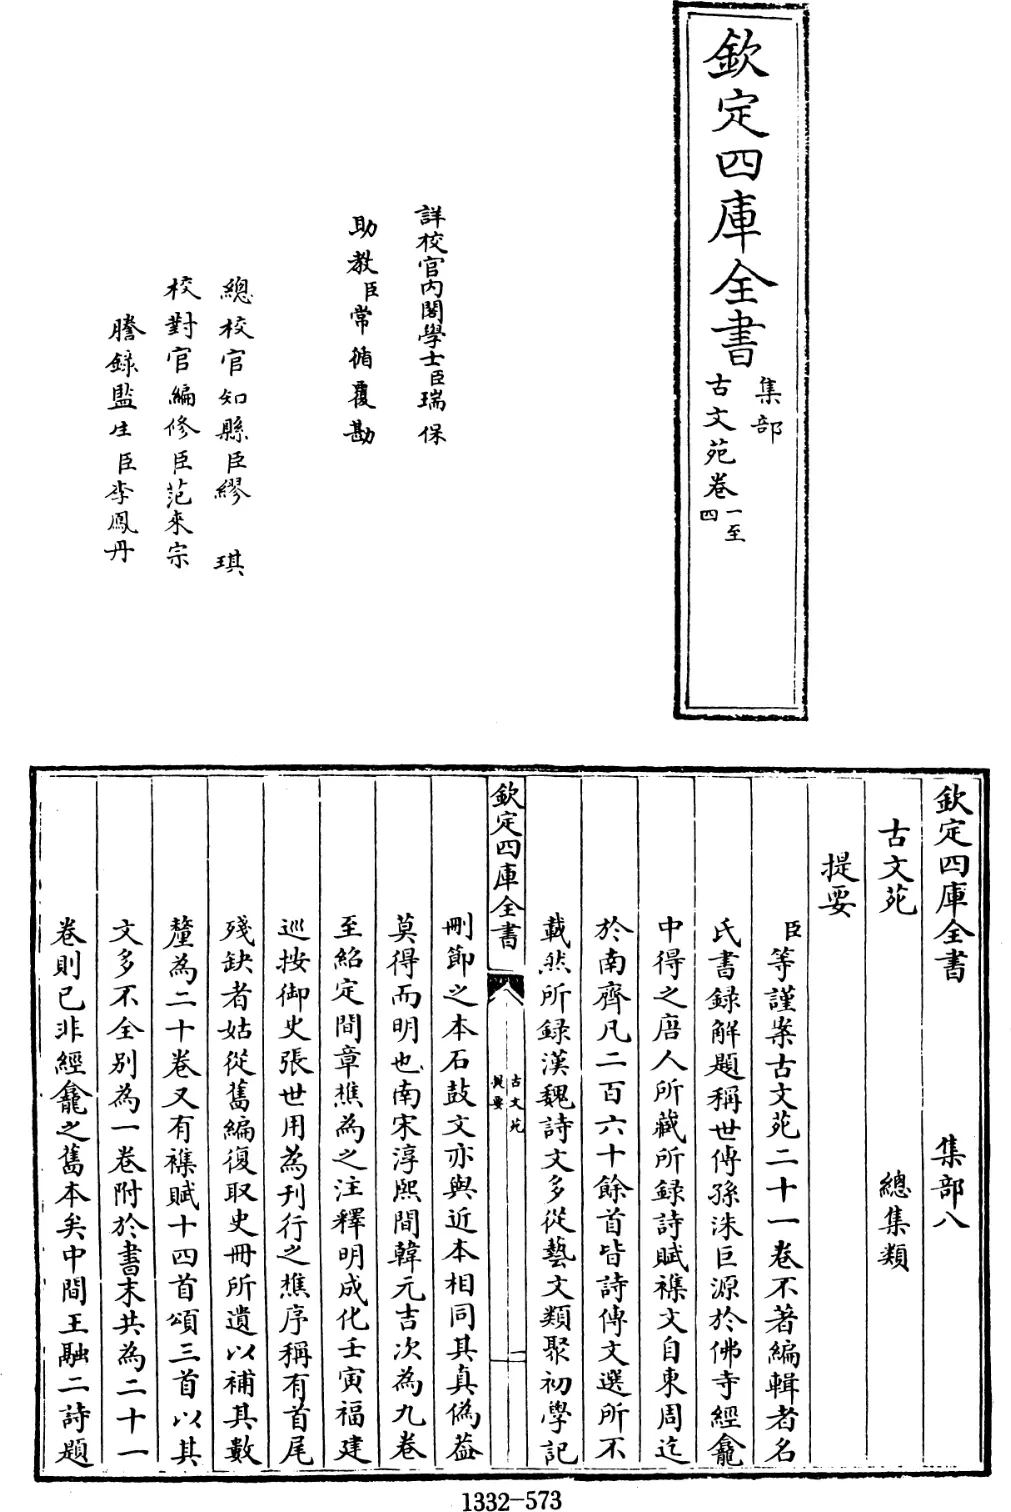 欽定四庫全書
集部
古文苑卷一至四
詳校官内閣學士臣瑞保
助教臣常循覆勘
總校官知縣臣繆琪
校對官編修臣范來宗
謄錄監生臣李鳳丹
欽定四庫全書 集部八
古文苑 總集類
提要
臣等謹案古文苑二十一卷不著編輯者名
氏書録解題稱世傳孫洙巨源於佛寺經龕
中得之唐人所藏所録詩賦襍文自東周迄
於南齊凡二百六十餘首皆詩傳文選所不
載然所録漢魏詩文多從藝文類聚初學記
欽定四庫全書
古文苑
提要
一
刪節之本石鼓文亦與近本相同其真偽葢
莫得而明也南宋淳熙間韓元吉次為九卷
至紹定間章樵為之注釋明成化壬寅福建
巡按御史張世用為刊行之樵序稱有首尾
殘缺者姑從舊編復取史冊所遺以補其數
釐為二十卷又有襍賦十四首頌三首以其
文多不全别為一卷附於書末共為二十一
卷則已非經龕之舊本矣中間王融二詩題
1332-573